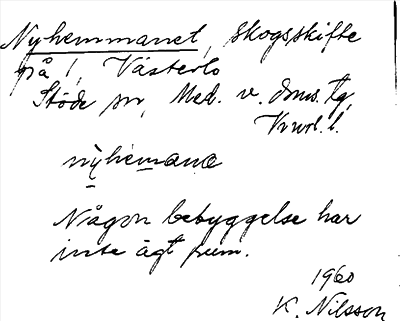 Nyhemmanet, skogsskifte
på 1, Västerlo
Stöde sn, Med. v. doms. tg,
Vnrl. l.
nyhemana
Någon bebyggelse har
inte ägt rum.
1960
K. Nilsson